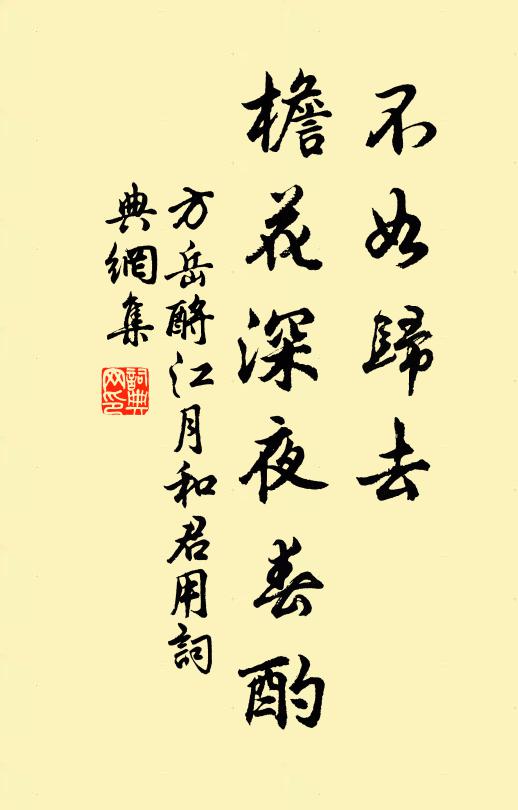 不如歸去
檐花深夜春酌
方岳酹江月和君用詞
典網集
詞典網印